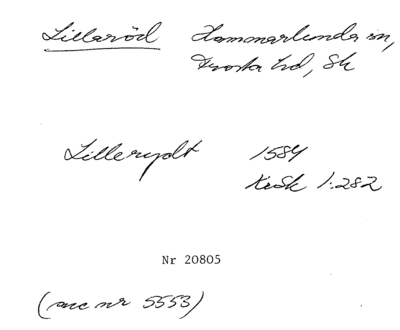 Lillaröd Hammarlunda sn,
Frosta hd, Sk
Lillerydt 1584
KoSk 1:282
Nr 20805
(mc nr 5553)